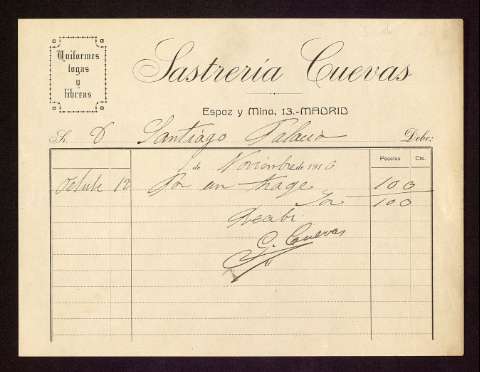 Uniformes
togas
y
libreas
Sastrería Cuevas
Espoz y Mina, 13.-MADRID
Sr. D. Santiago Palacio Debe:
de Noviembre de 191 Pesetas Cts.
Octubre 12 Por un traje 100
100
Recibí
G. Cuevas